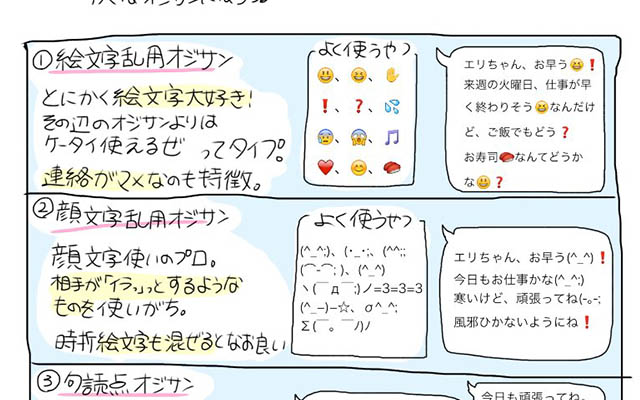 ①絵文字乱用オジサン
とにかく絵文字大好き!
その辺のオジサンよりは
ケータイ使えるぜ ってタイプ。
連絡がマメなのも特徴。
よく使うやつ
😃、😄、✋
❗、❓、💦
😰、😱、🎵
❤️、😊、🍣
エリちゃん、お早う😄❗
来週の火曜日、仕事が早
く終わりそう😄なんだけ
ど、ご飯でもどう❓
お寿司🍣なんてどうか
な😄❓
②顔文字乱用オジサン
顔文字使いのプロ。
相手が「イラッ」っとするような
ものを使いがち。
時折絵文字も混ぜるとなお良い
よく使うやつ
(^_^;)、(-_-;、(^^;;
(⌒-⌒; )、(^_^)
ヽ(￣д￣;)ノ=3=3=3
(^_−)−☆、σ^_^;
Σ(￣。￣ﾉ)ﾉ
エリちゃん、お早う(^_^)❗
今日もお仕事かな(^_^;)
寒いけど、頑張ってね(-。-;
風邪ひかないようにね❗
③句読点オジサン
今日も頑張ってね。